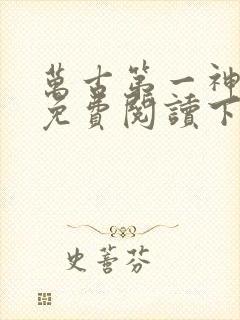 萬古第一神
免費閱讀下
史薈芬